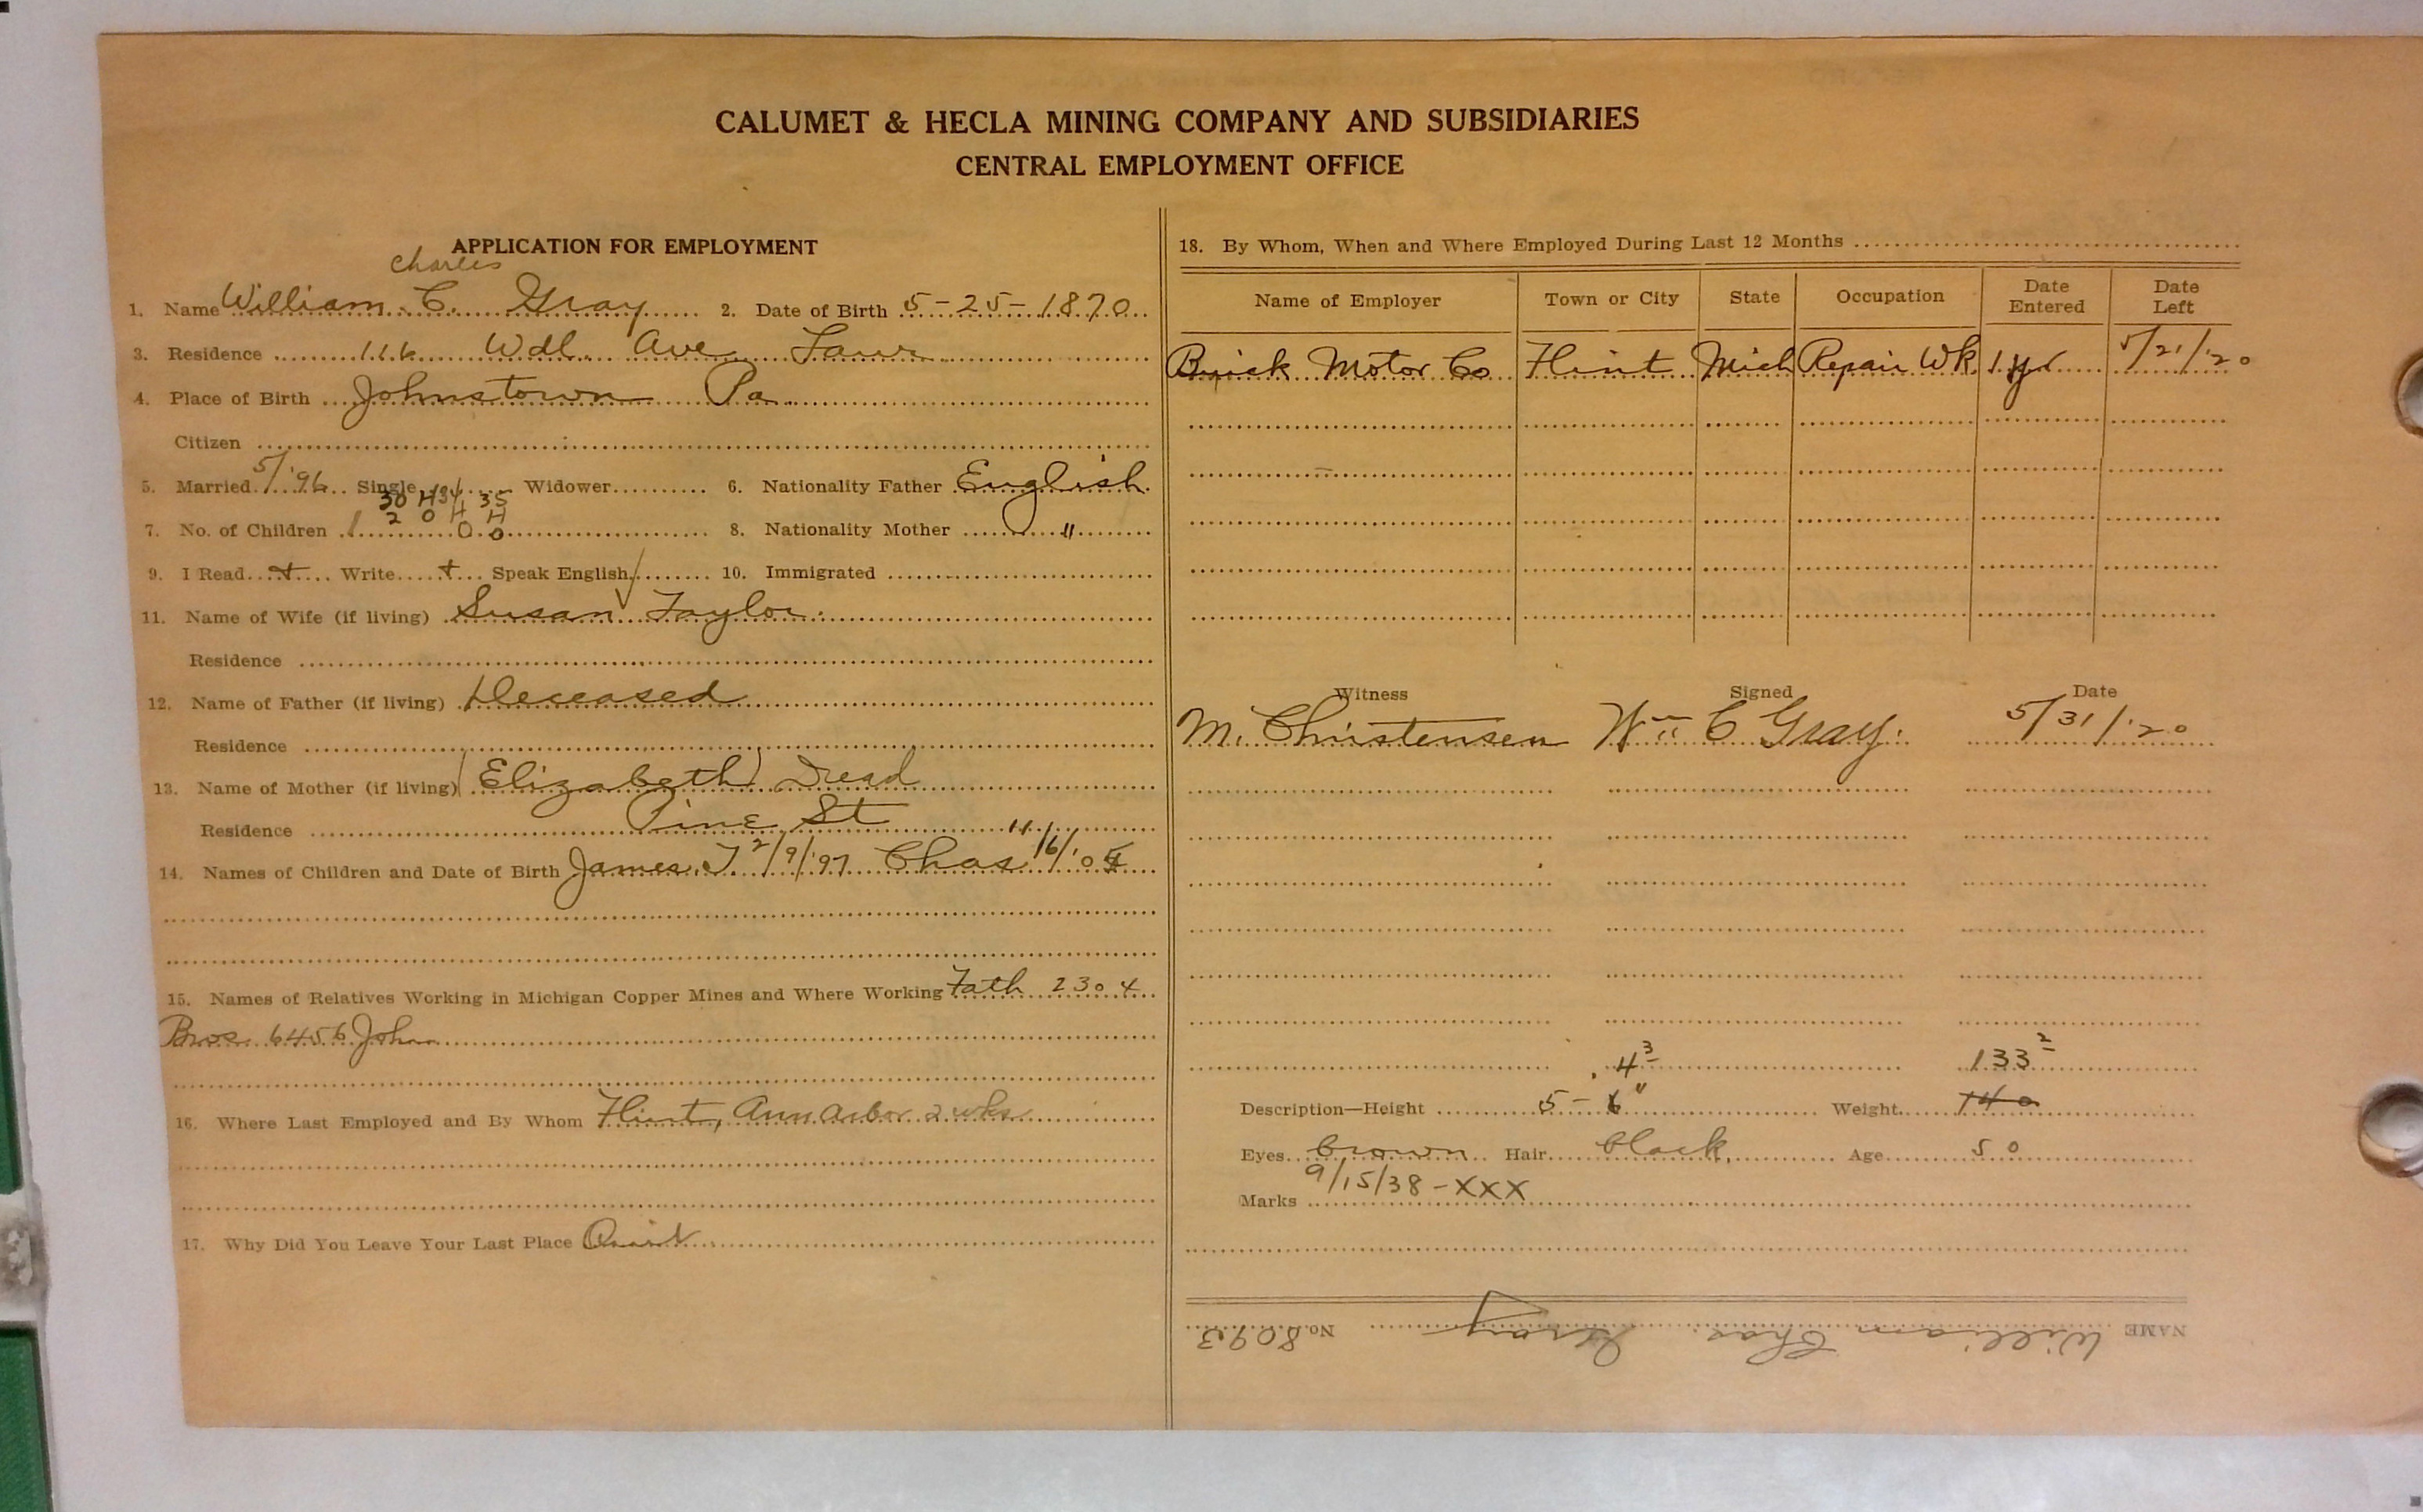 CALUMET & HECLA MINING COMPANY AND SUBSIDIARIES
CENTRAL EMPLOYMENT OFFICE
APPLICATION FOR EMPLOYMENT
Charles
1. Name William C. Gray 2. Date of Birth 5-25-1870
3. Residence 116 Wdl. Ave Laur
4. Place of Birth Johnstown Pa
Citizen
5. Married 5/'96 Single Widower 6. Nationality Father English
30 H34 35
2 0 H H
7. No. of Children 1 0 0 8. Nationality Mother "
9. I Read + Write + Speak English √ 10. Immigrated
11. Name of Wife (if living) Susan Taylor
Residence
12. Name of Father (if living) Deceased
Residence
13. Name of Mother (if living) (Elizabeth) Dead
Residence Pine St
14. Names of Children and Date of Birth James T 2/9/'97 Chas 11/6/'05
15. Names of Relatives Working in Michigan Copper Mines and Where Working Fath 2304
Bros 6456 John
16. Where Last Employed and By Whom Flint, Ann Arbor 2 wks
17. Why Did You Leave Your Last Place Quit
18. By Whom, When and Where Employed During Last 12 Months
Name of Employer Town or City State Occupation Date Entered Date Left
Buick Motor Co Flint Mich Repair Wk 1 yr 5/21/'20
Witness Signed Date
M. Christensen Wm C Gray. 5/31/'20
4 3 133 2
Description—Height 5-6" Weight 140
Eyes brown Hair black Age 50
9/15/38-XXX
Marks
NAME William Chas. Gray No. 8093